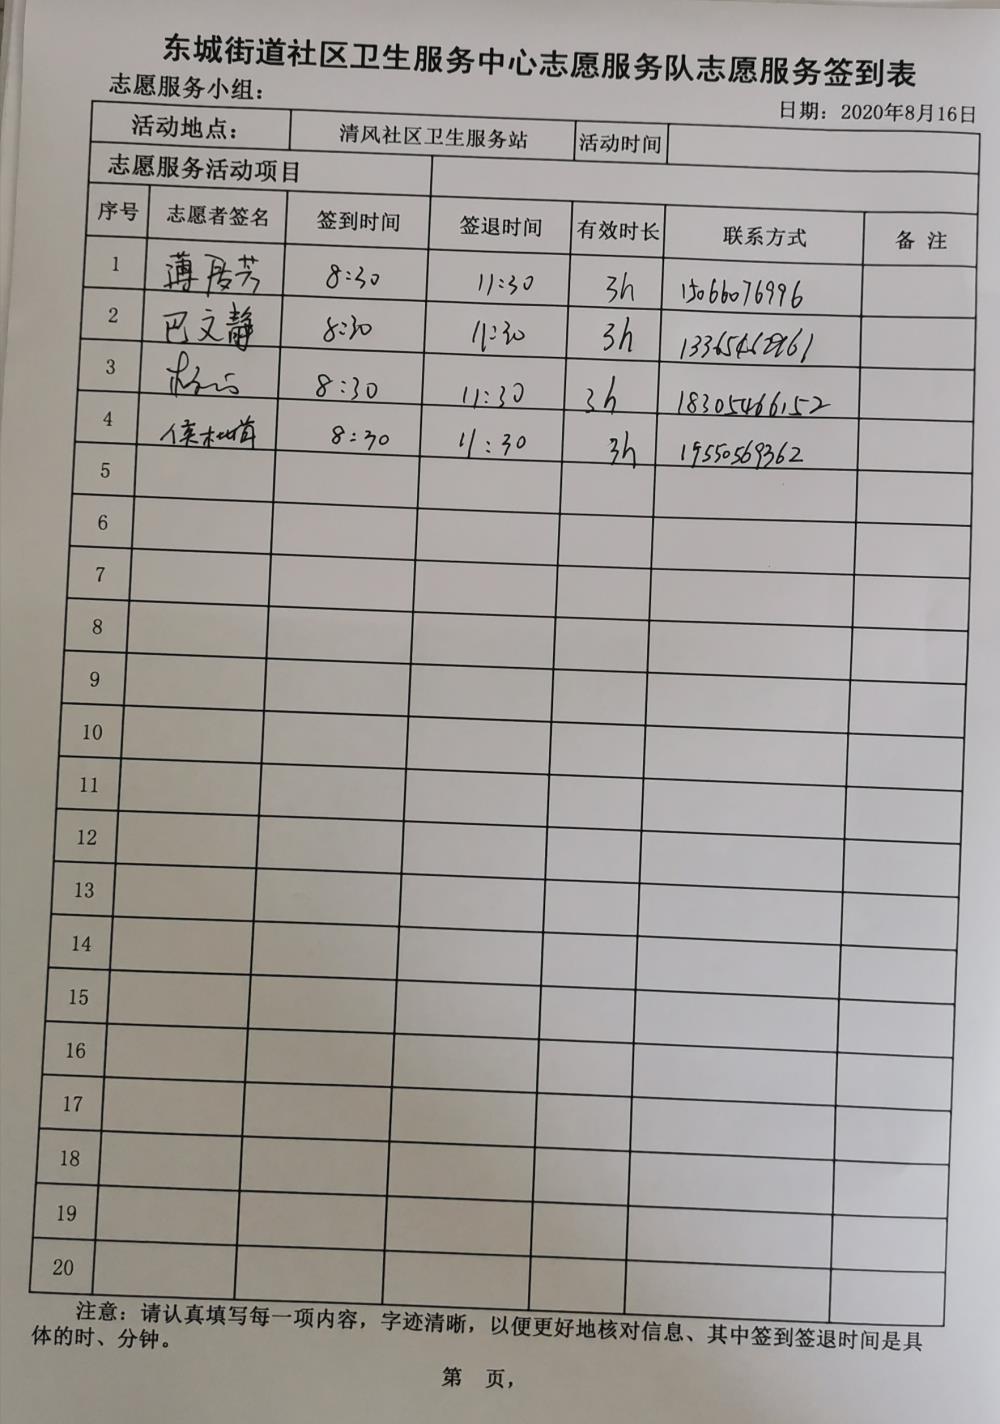 东城街道社区卫生服务中心志愿服务队志愿服务签到表
志愿服务小组：
日期：2020年8月16日
活动地点： 清风社区卫生服务站 活动时间
志愿服务活动项目
序号 志愿者签名 签到时间 签退时间 有效时长 联系方式 备 注
1 薄 芳 8:30 11:30 3h 15066076996
2 巴文静 8:30 11:30 3h
3 8:30 11:30 3h 18305466152
4 侯 8:30 11:30 3h 19550569362
5
6
7
8
9
10
11
12
13
14
15
16
17
18
19
20
注意：请认真填写每一项内容，字迹清晰，以便更好地核对信息、其中签到签退时间是具
体的时、分钟。
第 页，